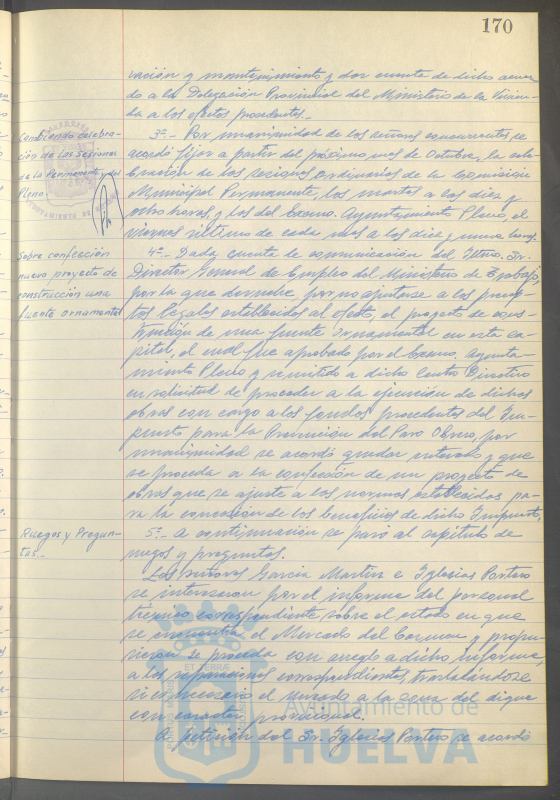 170
vación y mantenimiento y dar cuenta de dicho acuer-
do a la Delegación Provincial del Ministerio de la Vivien-
da a los efectos procedentes.-
Cambiando celebra-
ción de las sesiones
de la Permanente y del
Pleno.
3º.- Por unanimidad de los señores concurrentes se
acordó fijar a partir del próximo mes de Octubre, la cele-
bración de las sesiones ordinarias de la Comisión
Municipal Permanente, los martes a las diez y
ocho horas, y las del Excmo. Ayuntamiento Pleno, el
viernes último de cada mes a las diez y nueve horas.
Sobre confección
nuevo proyecto de
construcción una
fuente ornamental
4º.- Dada cuenta de comunicación del Iltmo. Sr.
Director General de Empleo del Ministerio de Trabajo,
por la que devuelve por no ajustarse a los precep-
tos legales establecidos al efecto, el proyecto de cons-
trucción de una fuente ornamental en esta ca-
pital, el cual fue aprobado por el Excmo. Ayunta-
miento Pleno y remitido a dicho Centro Directivo
en solicitud de proceder a la ejecución de dichas
obras con cargo a los fondos procedentes del Im-
puesto para la Prevención del Paro Obrero, por
unanimidad se acordó quedar enterado y que
se proceda a la confección de un proyecto de
obras que se ajuste a las normas establecidas pa-
ra la concesión de los beneficios de dicho Impuesto.
Ruegos y Pregun-
tas.-
5º.- A continuación se pasó al capítulo de
ruegos y preguntas.
Los señores García Martín e Iglesias Portero
se interesaron por el informe del personal
técnico correspondiente sobre el estado en que
se encuentra el Mercado del Carmen y propu-
sieron se proceda con arreglo a dicho informe,
a las reparaciones correspondientes, trasladándose
si es necesario el mercado a la zona del dique
con carácter provisional.
A petición del Sr. Iglesias Portero se acordó
Ayuntamiento de
HUELVA